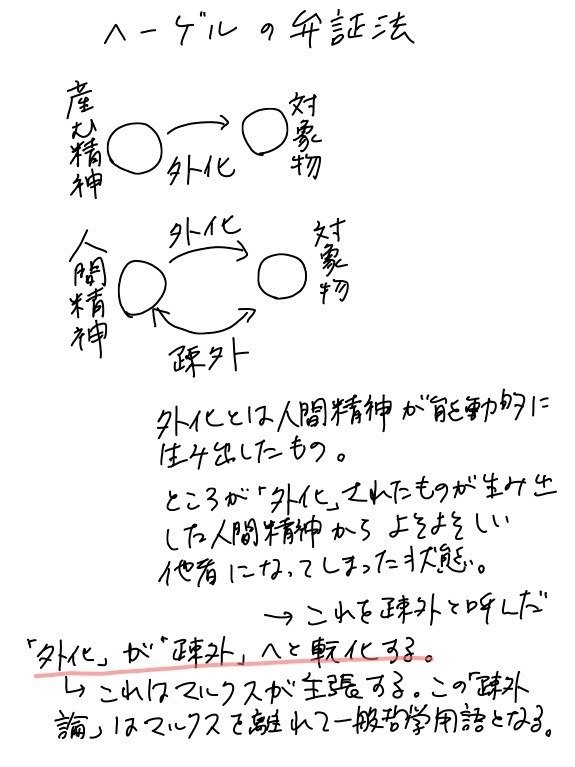 ヘーゲルの弁証法
産む精神
外化
対象物
人間精神
外化
対象物
疎外
外化とは人間精神が能動的に
生み出したもの。
ところが「外化」されたものが生み出
した人間精神からよそよそしい
他者になってしまった状態。
→これを疎外と呼んだ
「外化」が「疎外」へと転化する。
↳これはマルクスが主張する。この「疎外
論」はマルクスを離れて一般哲学用語となる。